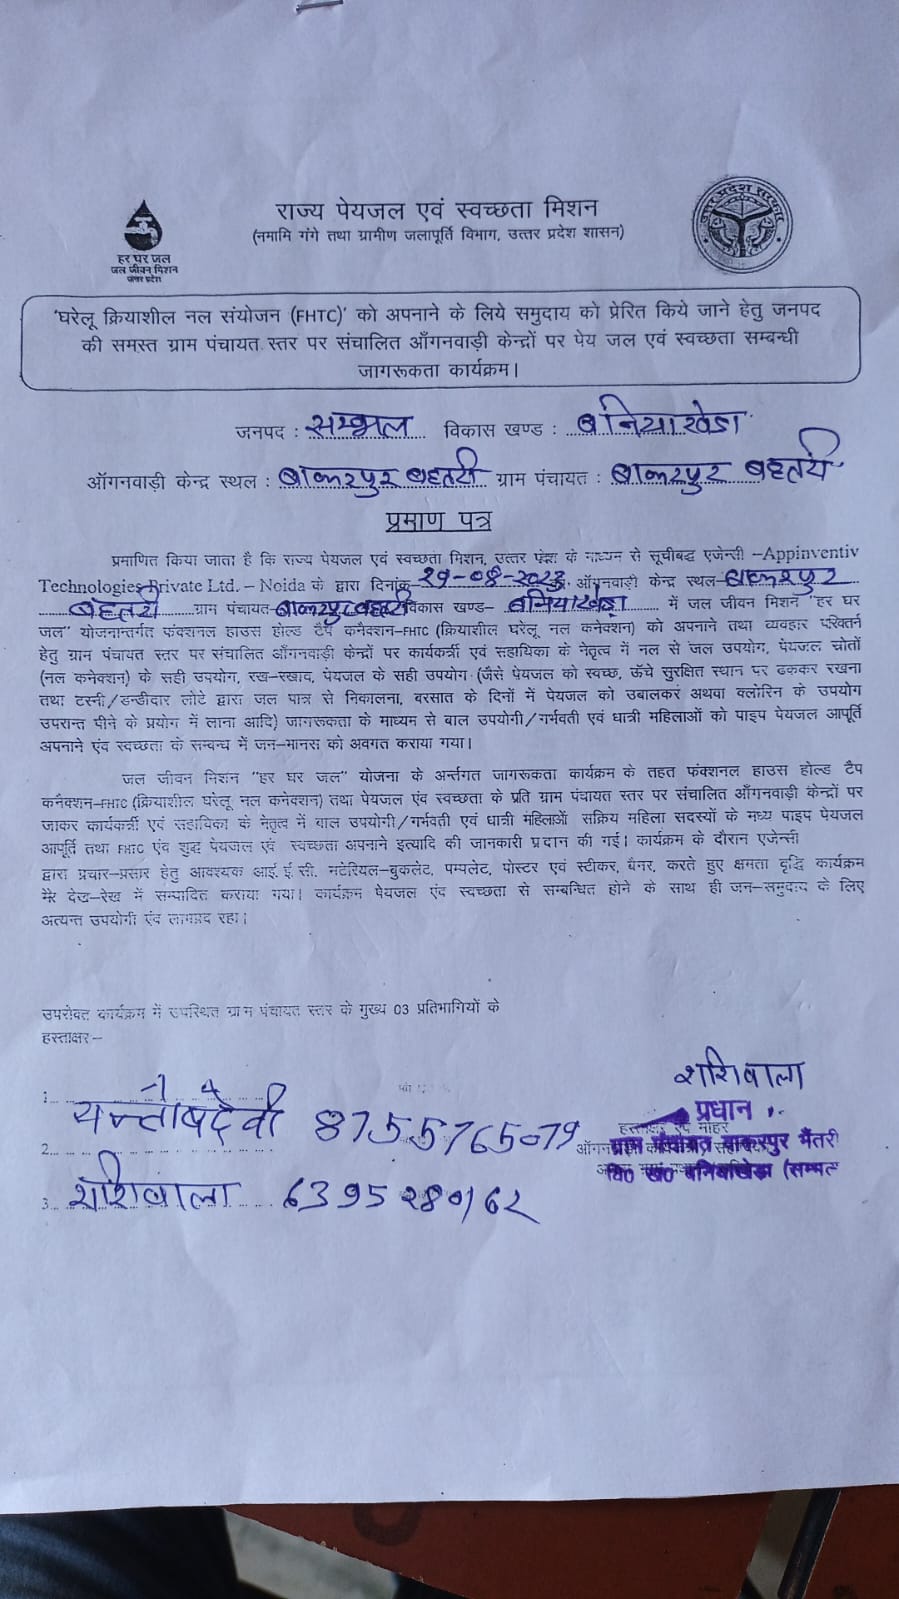 हर घर जल
जल जीवन मिशन
उत्तर प्रदेश
राज्य पेयजल एवं स्वच्छता मिशन
(नमामि गंगे तथा ग्रामीण जलापूर्ति विभाग, उत्तर प्रदेश शासन)
उत्तर प्रदेश सरकार
'घरेलू क्रियाशील नल संयोजन (FHTC)' को अपनाने के लिये समुदाय को प्रेरित किये जाने हेतु जनपद
की समस्त ग्राम पंचायत स्तर पर संचालित आँगनवाड़ी केन्द्रों पर पेय जल एवं स्वच्छता सम्बन्धी
जागरूकता कार्यक्रम।
जनपद : सम्भल विकास खण्ड : बनियाखेडा
ऑगनवाड़ी केन्द्र स्थल : बाकरपुर बहतरी ग्राम पंचायत : बाकरपुर बहतरी
प्रमाण पत्र
प्रमाणित किया जाता है कि राज्य पेयजल एवं स्वच्छता मिशन, उत्तर प्रदेश के माध्यम से सूचीबद्ध एजेन्सी –Appinventiv
Technologies Private Ltd. – Noida के द्वारा दिनांक 29-08-2023 ऑगनवाड़ी केन्द्र स्थल- बाकरपुर
बहतरी ग्राम पंचायत- बाकरपुर बहतरी विकास खण्ड– बनियाखेडा में जल जीवन मिशन "हर घर
जल" योजनान्तर्गत फंक्शनल हाउस होल्ड टैप कनैक्शन–FHTC (क्रियाशील घरेलू नल कनेक्शन) को अपनाने तथा व्यवहार परिवर्तन
हेतु ग्राम पंचायत स्तर पर संचालित आँगनवाड़ी केन्द्रों पर कार्यकर्त्री एवं सहायिका के नेतृत्व में नल से जल उपयोग, पेयजल स्रोतों
(नल कनेक्शन) के सही उपयोग, रख–रखाव, पेयजल के सही उपयोग (जैसे पेयजल को स्वच्छ, ऊँचे सुरक्षित स्थान पर ढककर रखना
तथा टस्नी/डन्डीदार लोटे द्वारा जल पात्र से निकालना, बरसात के दिनों में पेयजल को उबालकर अथवा क्लोरिन के उपयोग
उपरान्त पीने के प्रयोग में लाना आदि) जागरूकता के माध्यम से बाल उपयोगी/गर्भवती एवं धात्री महिलाओं को पाइप पेयजल आपूर्ति
अपनाने एंव स्वच्छता के सम्बन्ध में जन–मानस को अवगत कराया गया।
जल जीवन मिशन "हर घर जल" योजना के अर्न्तगत जागरूकता कार्यक्रम के तहत फंक्शनल हाउस होल्ड टैप
कनैक्शन–FHTC (क्रियाशील घरेलू नल कनेक्शन) तथा पेयजल एंव स्वच्छता के प्रति ग्राम पंचायत स्तर पर संचालित आँगनवाड़ी केन्द्रों पर
जाकर कार्यकर्त्री एवं सहायिका के नेतृत्व में बाल उपयोगी/गर्भवती एवं धात्री महिलाओं सक्रिय महिला सदस्यों के मध्य पाइप पेयजल
आपूर्ति तथा FHTC एंव शुद्ध पेयजल एवं स्वच्छता अपनाने इत्यादि की जानकारी प्रदान की गई। कार्यक्रम के दौरान एजेन्सी
द्वारा प्रचार–प्रसार हेतु आवश्यक आई.ई.सी. मटेरियल–बुकलेट, पम्पलेट, पोस्टर एवं स्टीकर, बैनर, करते हुए क्षमता वृद्धि कार्यक्रम
मेरे देख–रेख में सम्पादित कराया गया। कार्यक्रम पेयजल एंव स्वच्छता से सम्बन्धित होने के साथ ही जन–समुदाय के लिए
अत्यन्त उपयोगी एंव लाभप्रद रहा।
उपरोक्त कार्यक्रम में उपस्थित ग्राम पंचायत स्तर के मुख्य 03 प्रतिभागियों के
हस्ताक्षर–
शशिवाला
1. सन्तोष देवी 8755765079
प्रधान
हस्ताक्षर एवं मोहर
2.
ग्राम पंचायत बाकरपुर
वि० ख० बनियाखेडा (सम्भल
3. शशिवाला 6395280162